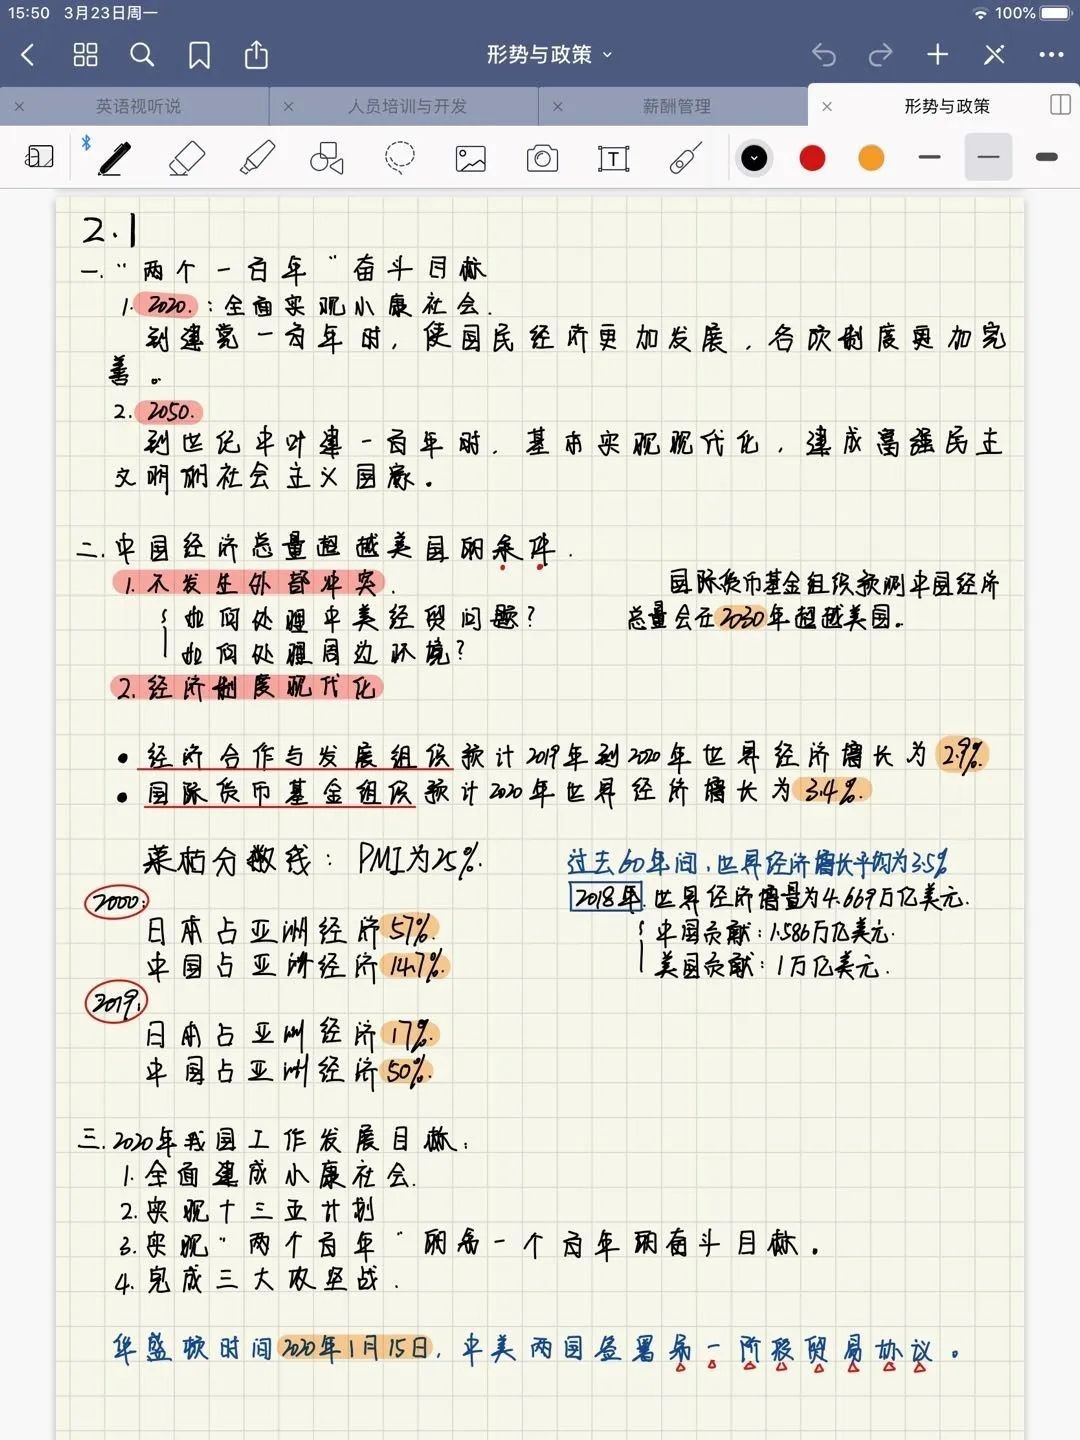 15:50 3月23日周一
100%
形势与政策
英语视听说
人员培训与开发
薪酬管理
形势与政策
2.1
一."两个一百年"奋斗目标
1. 2020.:全面实现小康社会.
到建党一百年时,使国民经济更加发展,各项制度更加完
善。
2. 2050.
到世纪中叶建一百年时,基本实现现代化,建成富强民主
文明的社会主义国家。
二.中国经济总量超越美国的条件.
1.不发生外部冲突.
如何处理中美经贸问题?
如何处理周边环境?
2.经济制度现代化
国际货币基金组织预测中国经济
总量会在2030年超越美国。
• 经济合作与发展组织预计2019年到2020年世界经济增长为2.9%.
• 国际货币基金组织预计2020年世界经济增长为3.4%.
荣枯分数线:PMI为25%.
2000:
日本占亚洲经济57%.
中国占亚洲经济14.7%.
2019:
日本占亚洲经济17%.
中国占亚洲经济50%.
过去60年间,世界经济增长平均为3.5%
2018年.世界经济增量为4.669万亿美元.
中国贡献:1.586万亿美元.
美国贡献:1万亿美元.
三.2020年我国工作发展目标:
1.全面建成小康社会.
2.实现十三五计划
3.实现"两个百年"的第一个百年的奋斗目标。
4.完成三大攻坚战.
华盛顿时间2020年1月15日,中美两国签署第一阶段贸易协议。